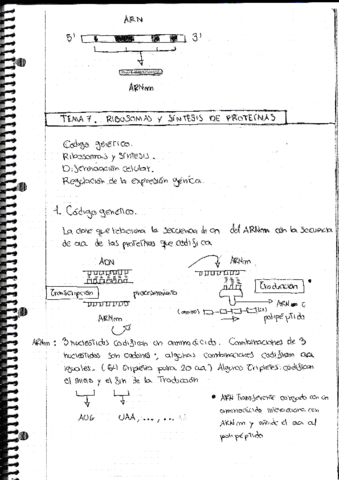 ARN
5' 3'
ARNm
TEMA 7. RIBOSOMAS Y SÍNTESIS DE PROTEÍNAS
Código genético.
Ribosomas y síntesis.
Diferenciación celular.
Regulación de la expresión génica.
1. Código genético.
La clave que relaciona la secuencia de del ARNm con la secuencia
de aa de las proteínas que codifica
ADN ARNm
Transcripción procesamiento Traducción
ARNm
polipéptido
ARNm: 3 nucleótidos codifican un aminoácido. Combinaciones de 3
nucleótidos son codones; algunas combinaciones codifican aa
iguales. (64 tripletes para 20 aa) Algunos tripletes codifican
el inicio y el fin de la Traducción
AUG UAA, ..., ...
ARN Transferente cargado con un
aminoácido interacciona con
ARNm y añade el aa al
polipéptido